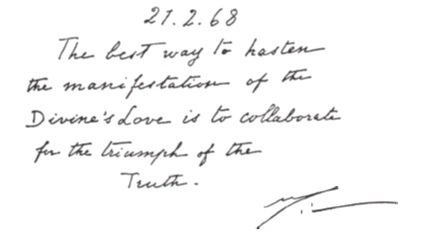 21.2.68
The best way to hasten
the manifestation of the
Divine's Love is to collaborate
for the triumph of the
Truth.